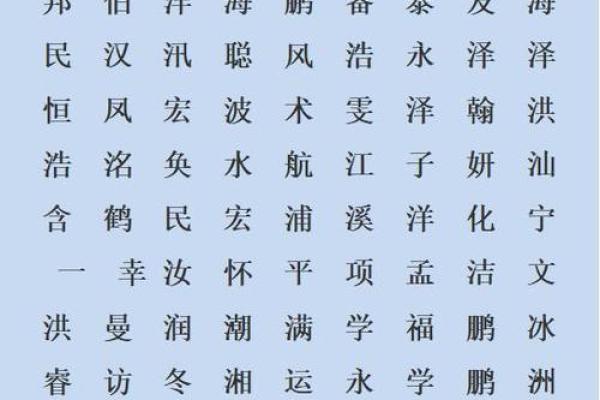 邦 伯 洋 海 鹏 备 泰 及 海
民 汉 汛 聪 风 浩 永 泽 泽
恒 凤 宏 波 术 雯 泽 翰 洪
浩 洺 奂 水 航 江 子 妍 汕
含 鹤 民 宏 浦 溪 洋 化 宁
一 幸 汝 怀 平 项 孟 洁 文
洪 曼 润 潮 满 学 福 鹏 冰
睿 访 冬 湘 运 永 学 鹏 洲